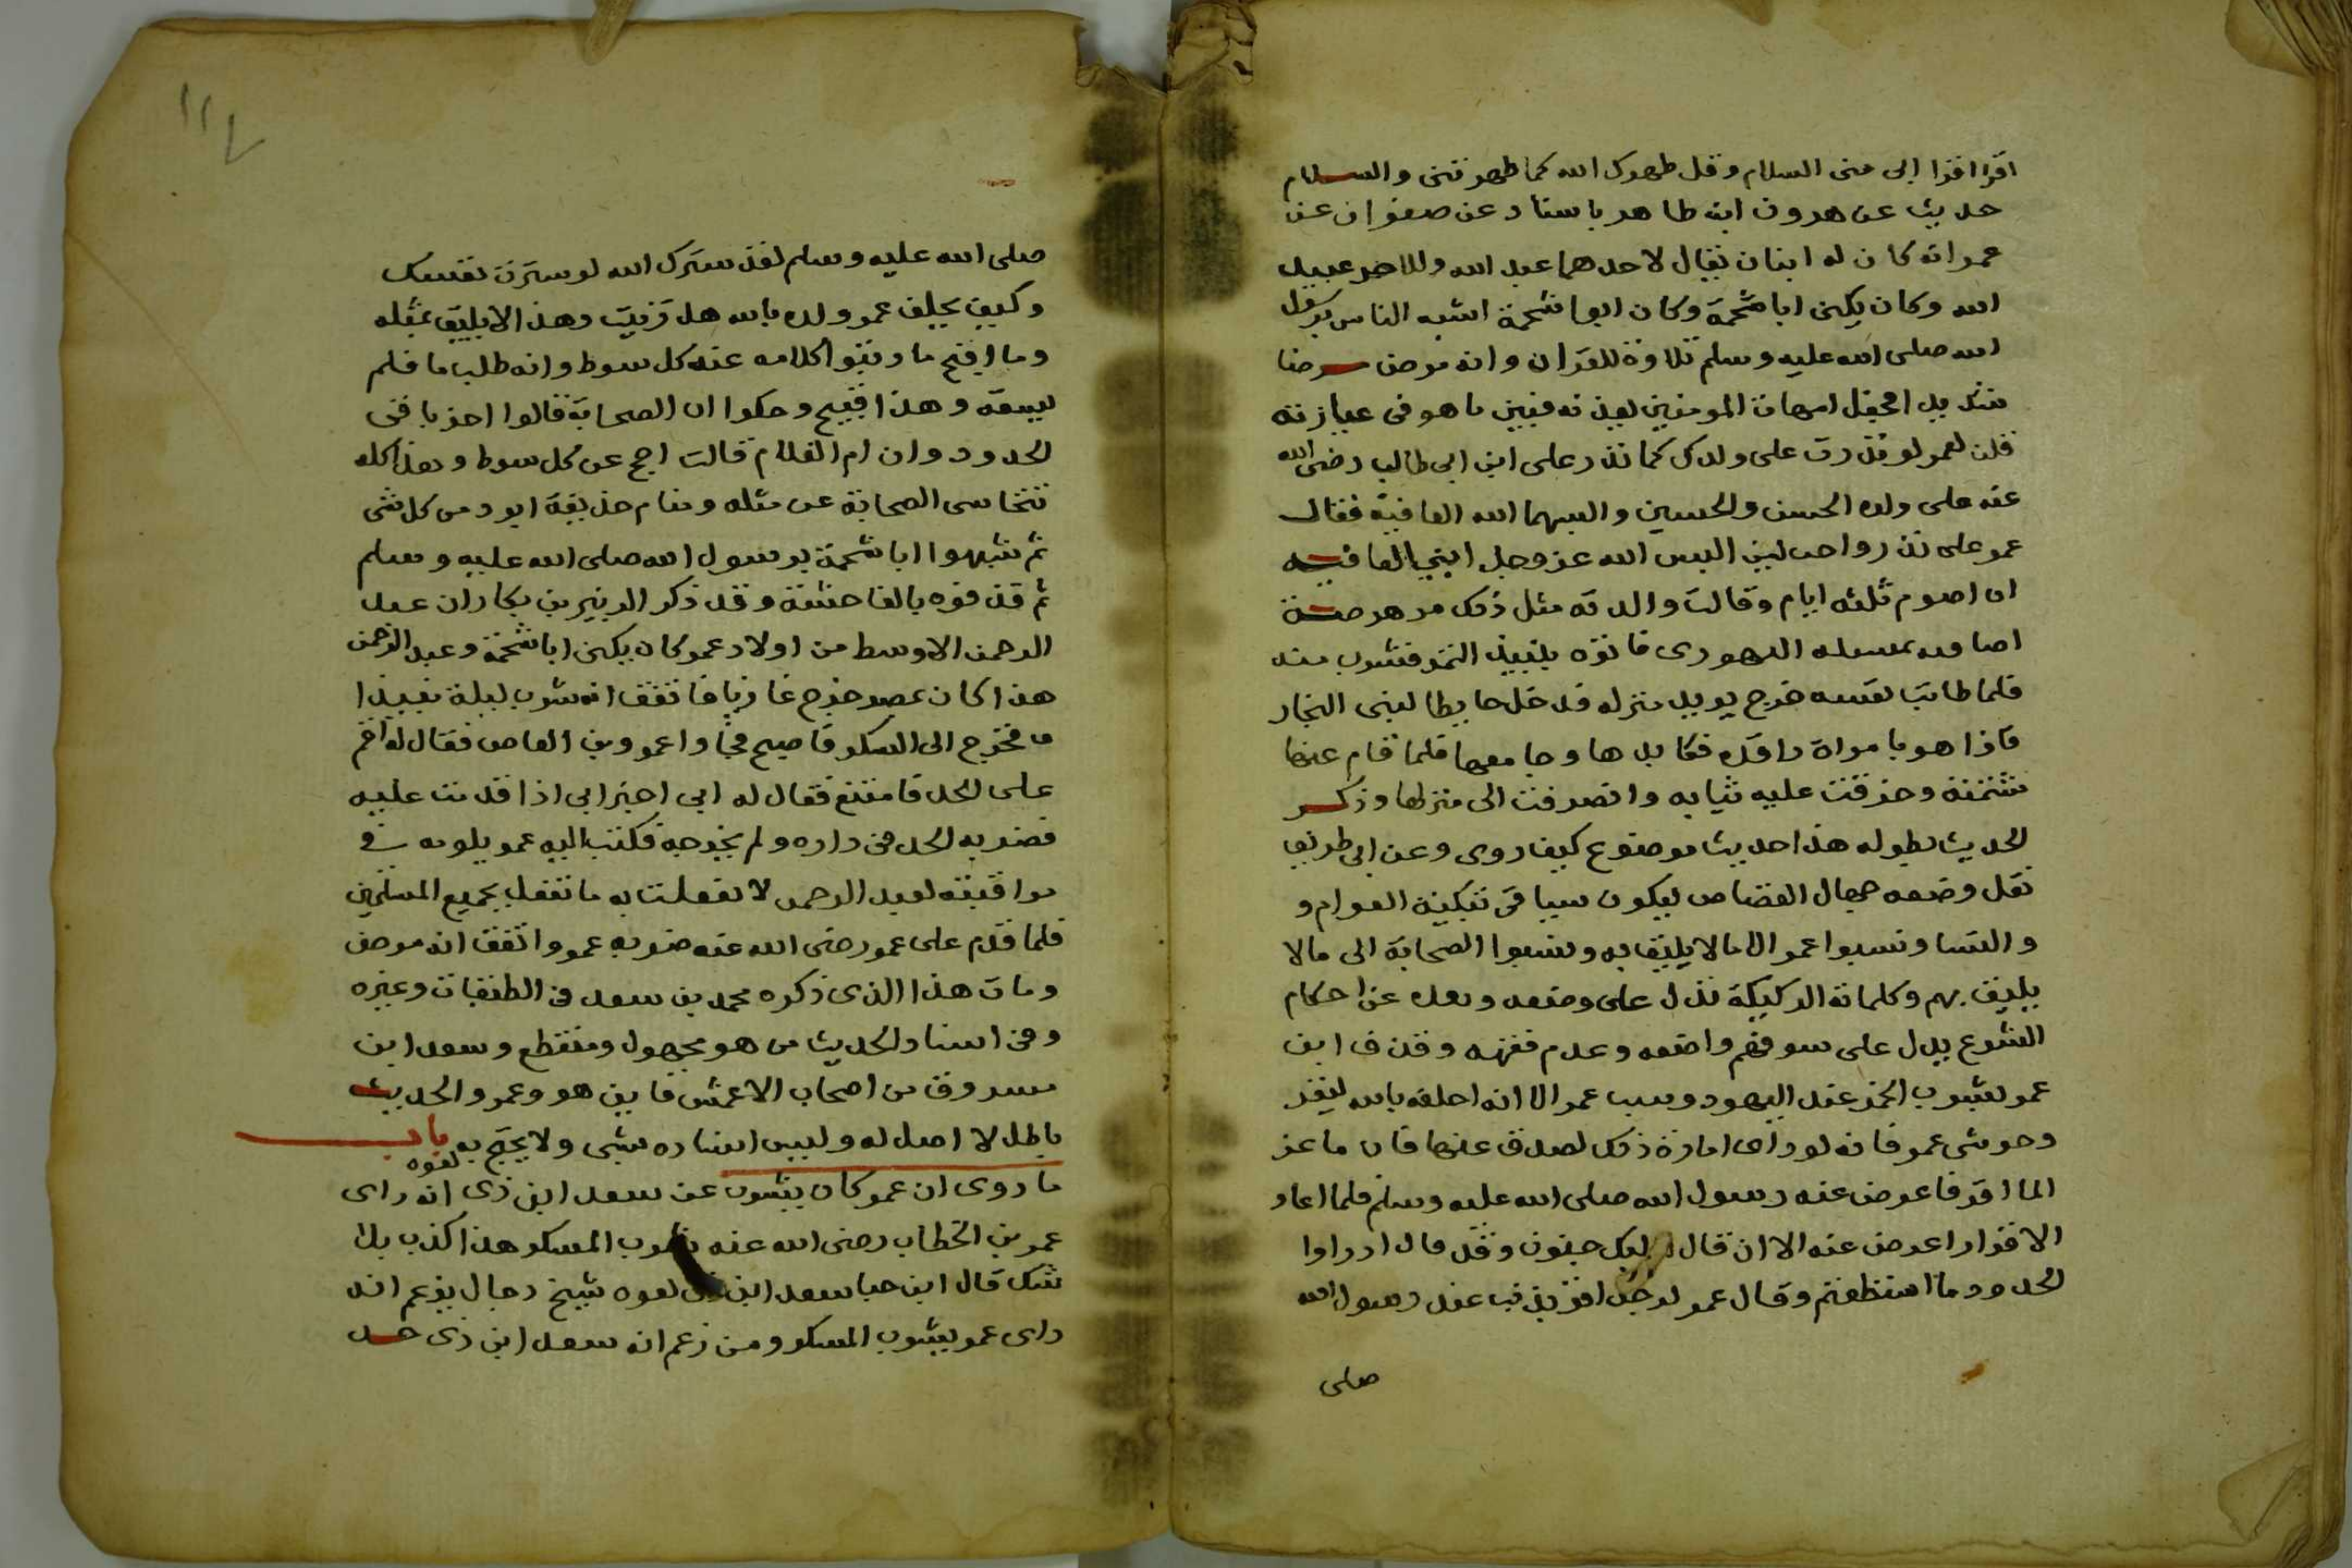 اقرا اقرا ابى منى السلام وقل طهرك الله كما طهرتنى والسلام
حديث عن هرون ابن طاهر باسناد عن صفوان عن
عمر انه كان له ابنان يقال لاحدهما عبد الله وللاخر عبيد
الله وكان يكنى ابا شحمة وكان ابوا شحمة اشبه الناس برسول
الله صلى الله عليه وسلم تلاوة للقران وانه مرض مرضا
شديدا فجعل امهات المومنين يعدنه فبين ما هو فى عيازته
قلن لعمر لو نذرت على ولدك كما نذر على ابن ابى طالب رضى الله
عنه على ولده الحسن والحسين والبسهما الله العافية فقال
عمر على نذر واجب لين البس الله عز وجل ابني العافيه
ان اصوم ثلثه ايام وقالت والدته مثل ذلك
اليهودى فاتوه بنبيذ التمر فشرب منه
فلما طابت نفسه خرج يريد منزله فدخل حايطا لبنى النجار
فاذا هو بامراة راقده فكابدها وجامعها فلما قام عنها
شتمته وخرقت عليه ثيابه وانصرفت الى منزلها وذكر
الحديث بطوله هذا حديث موضوع كيف روى وعن اى طريق
نقل وضعه جهال القصاص ليكون سببا فى تبكية العوام و
والنسا ونسبوا عمر الى ما لا يليق به ونسبوا الصحابة الى ما لا
يليق بهم وكلماته الركيكة تدل على وضعه وبعده عن احكام
الشرع يدل على سو فهم واضعه وعدم فقهه وقذف ابن
عمر بشرب الخمر عند اليهود ونسب عمر الا انه احلفه بالله ليقر
وحوشى عمر فانه لو راى امارة ذلك لصدف عنها فان ماعز
الما اقر فاعرض عنه رسول الله صلى الله عليه وسلم فلما اعاد
الاقرار اعرض عنه الا ان قال ابك جنون وقد قال ادراوا
الحدود ما استطعتم وقال عمر لرجل اقر بذنب عند رسول الله
صلى
١١٧
صلى الله عليه وسلم لقد سترك الله لو سترت نفسك
وكيف يحلف عمر ولده بالله هل زنيت وهذا لا يليق بمثله
وما اقبح ما زينوا كلامه عند كل سوط وانه طلب ما فلم
يسقه وهذا قبيح وحكوا ان الصحابة قالوا اخر باقى
الحدود وان ام الغلام قالت احج عن كل سوط وهذا كله
تتحاشى الصحابة عن مثله ومنام حذيفة ابرد من كل شى
ثم شبهوا ابا شحمة برسول الله صلى الله عليه وسلم
ثم قذفوه بالفاحشة وقد ذكر الزبير بن بكار ان عبد
الرحمن الاوسط من اولاد عمر كان يكنى ابا شحمة وعبد الرحمن
هذا كان بمصر خرج غازيا فاتفق انه شرب ليلة نبيذا
فخرج الى السكر فاصبح فجاوا عمرو بن العاص فقال له اقم
على الحد فامتنع فقال له انى اخبر ابى اذا قدمت عليه
فضربه الحد فى داره ولم يخرجه فكتب اليه عمر يلومه فى
مراقبته لعبد الرحمن لا فعلت به ما تفعل بجميع المسلمين
فلما قدم على عمر رضى الله عنه ضربه عمر واتفق انه مرض
ومات هذا الذى ذكره محمد بن سعد فى الطبقات وغيره
وفى اسناد الحديث من هو مجهول ومنقطع وسعد ابن
مسروق من اصحاب الاعمش فاين هو وعمر والحديث
باطل لا اصل له وليس اسناده بشى ولا يحتج به باب
ما روى ان عمر كان يشرب عن سعد ابن ذى لعوه انه راى
عمر بن الخطاب رضى الله عنه يشرب المسكر هذا كذب بلا
شك قال ابن حبا سعد ابن ذى لعوه شيخ دجال يزعم انه
راى عمر يشرب المسكر ومن زعم انه سعد ابن ذى حد